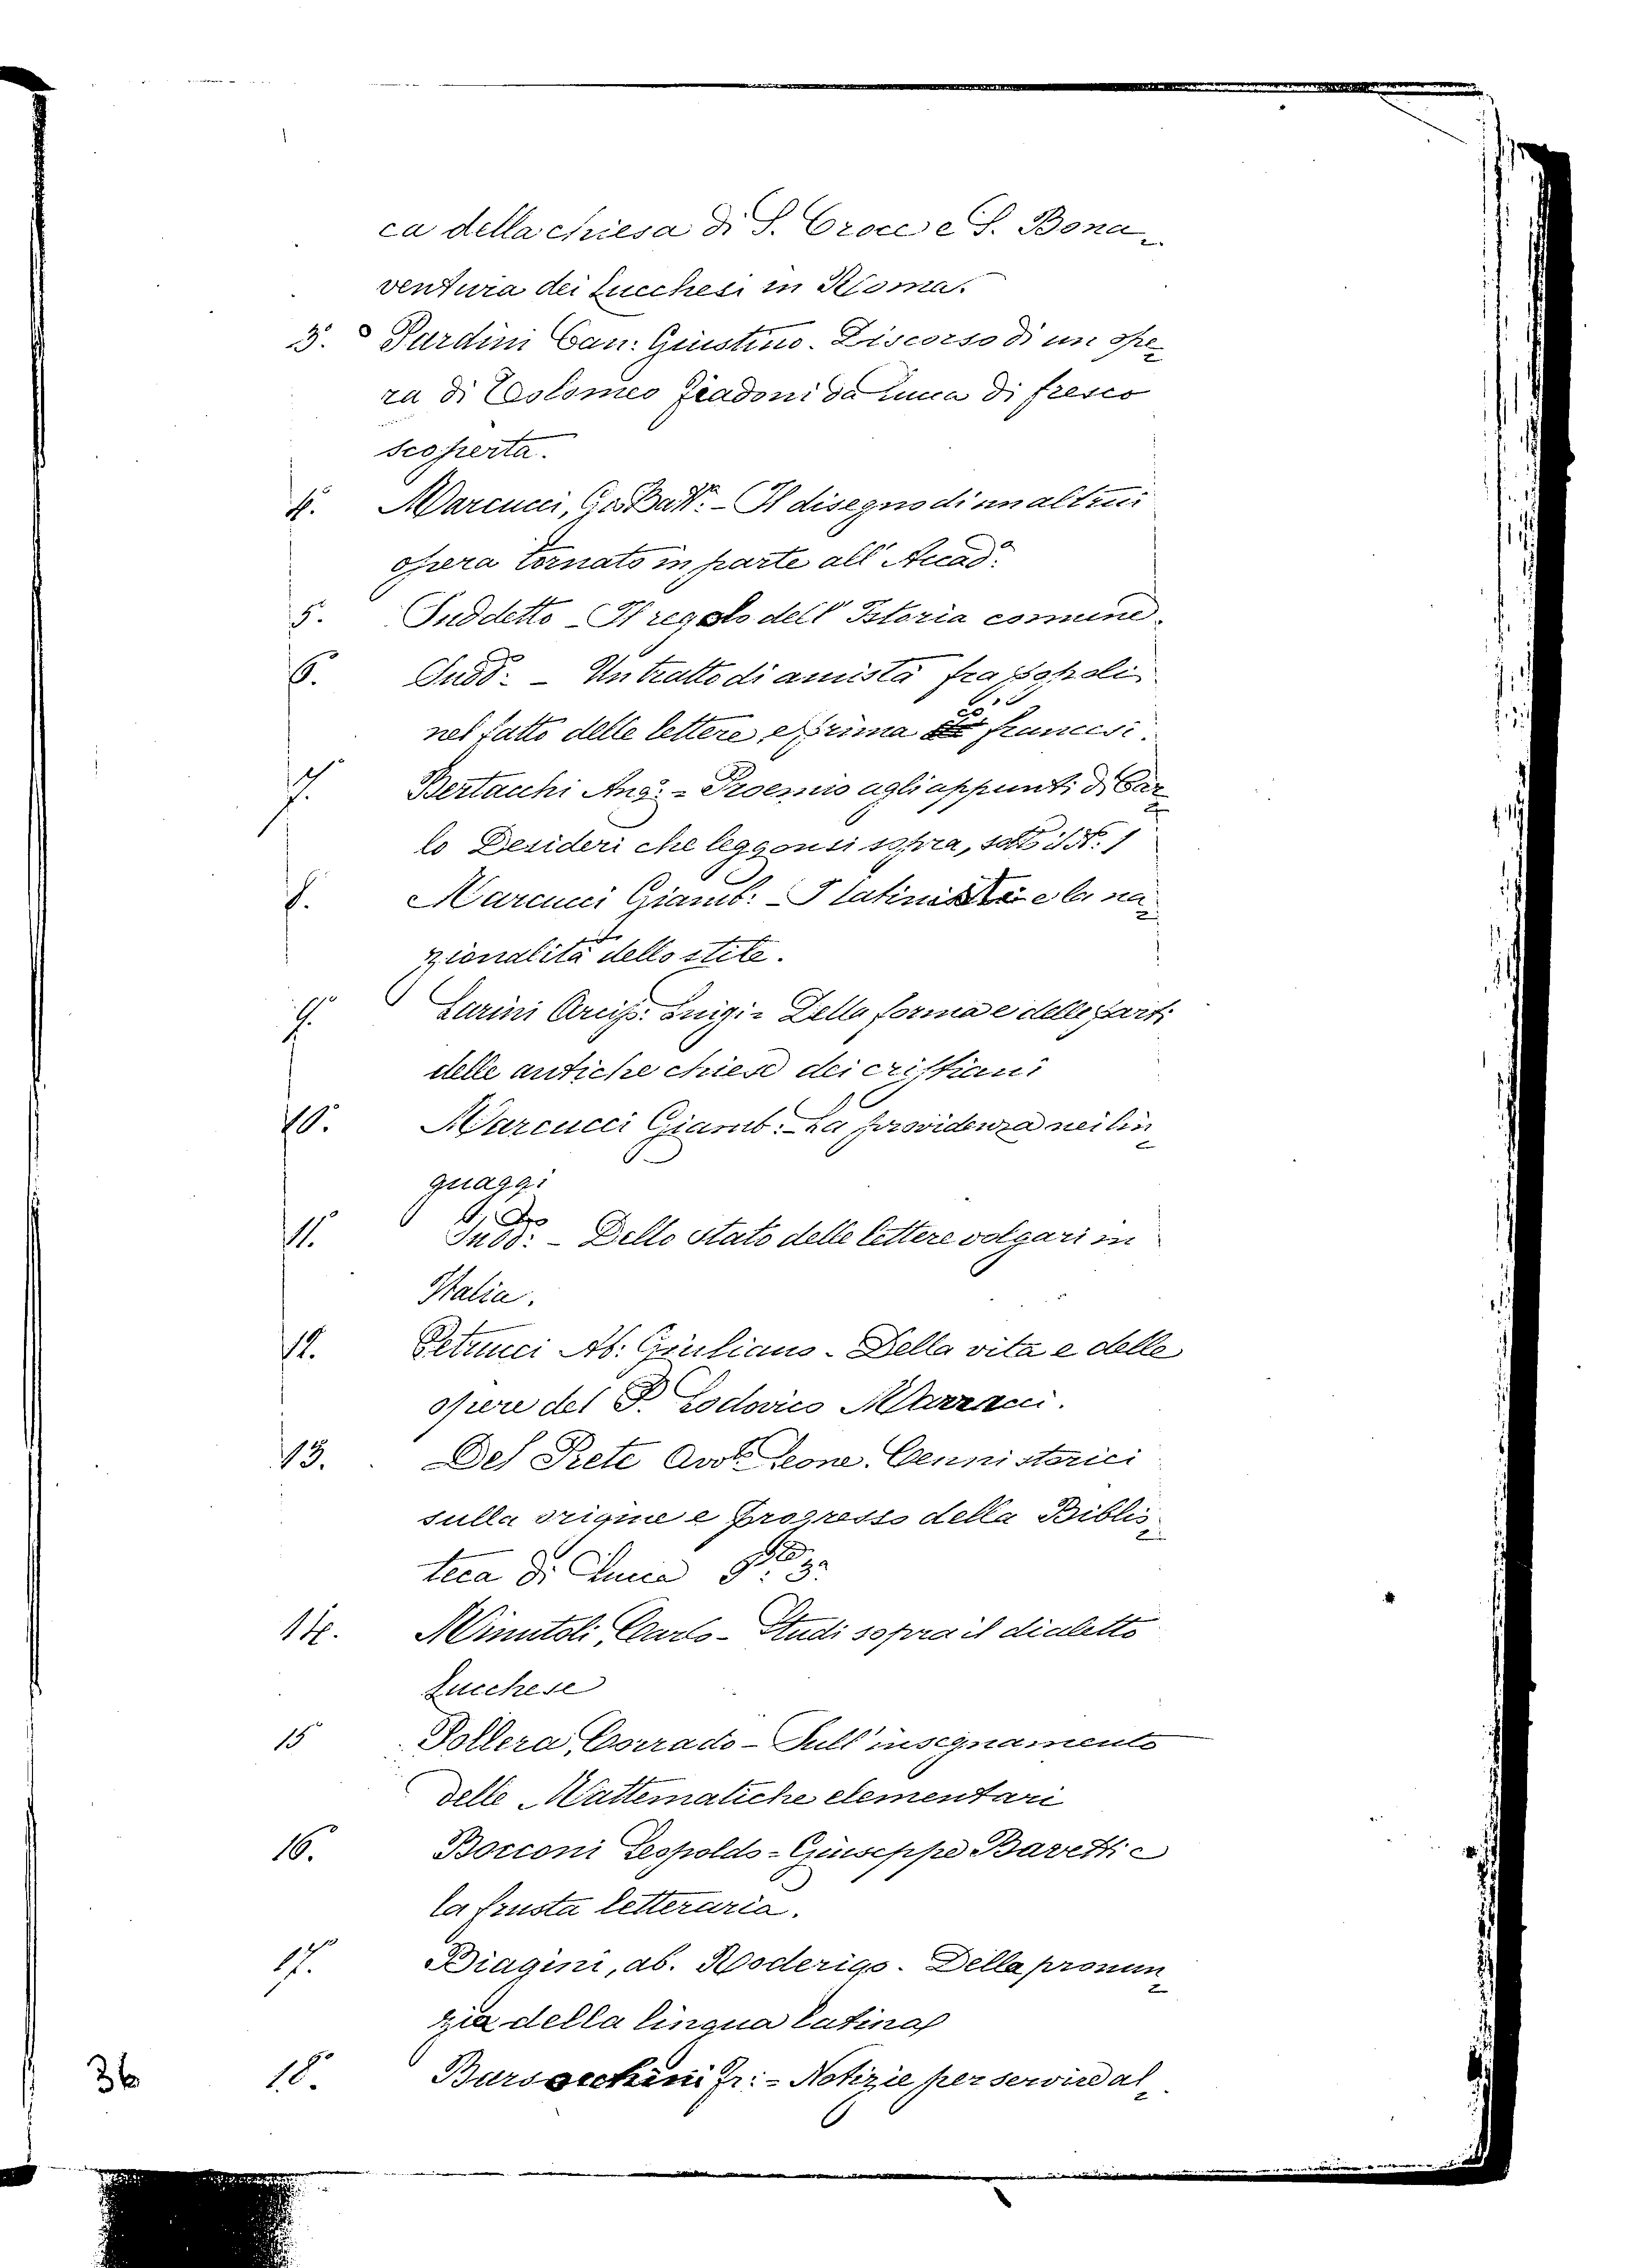 ca della chiesa di S. Croce e S. Bona-
ventura dei Lucchesi in Roma.
3. Pardini Can: Giustino. Discorso di un ope-
ra di Tolomeo Fiadoni da Lucca di fresco
scoperta.
4. Marcucci, Gio Batt: - Il disegno di un altrui
opera tornato in parte all' Accad:a
5. Suddetto - Il regolo dell' Istoria comune.
6. Sudd:o - Un tratto di amistà fra popoli
nel fatto delle lettere e prima co' francesi.
7. Bertacchi Ang:o = Proemio agli appunti di Car-
lo Desideri che leggonsi sopra, sotto il N. 1
8. Marcucci Giamb: - I latinisti e la na-
zionalità dello stile.
9. Larini Arcip: Luigi = Della forma e delle parti
delle antiche chiese dei cristiani
10. Marcucci Giamb: - La provvidenza nei lin-
guaggi
11. Sudd:o - Dello stato delle lettere volgari in
Italia.
12. Petrucci Ab: Giuliano - Della vita e delle
opere del P. Lodovico Marracci.
13. Del Prete Avv:to Leone. Cenni storici
sulla origine e progresso della Biblio-
teca di Lucca P:te 3a
14. Minutoli, Carlo - Studi sopra il dialetto
Lucchese
15 Pollera, Corrado - Sull' insegnamento
delle Mattematiche elementari
16. Bocconi Leopoldo = Giuseppe Baretti e
la frusta letteraria.
17. Biagini, ab. Roderigo. Della pronun-
zia della lingua latina
18. Barsocchini Fr: = Notizie per servire al-
36